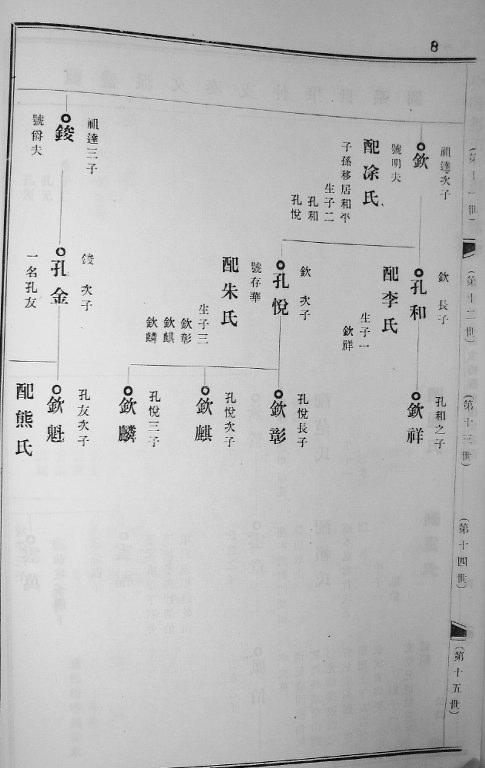 8
(第十一世)
祖達次子
欽
號明夫
配凃氏
生子二
孔和
孔悅
子孫移居和平
祖達三子
錂
號爵夫
(第十二世)
欽 長子
孔和
配李氏
生子一
欽祥
欽 次子
孔悅
號存華
配朱氏
生子三
欽彰
欽麒
欽麟
錂 次子
孔金
一名孔友
(第十三世)
孔和之子
欽祥
孔悅長子
欽彰
孔悅次子
欽麒
孔悅三子
欽麟
孔友次子
欽魁
配熊氏
(第十四世)
(第十五世)